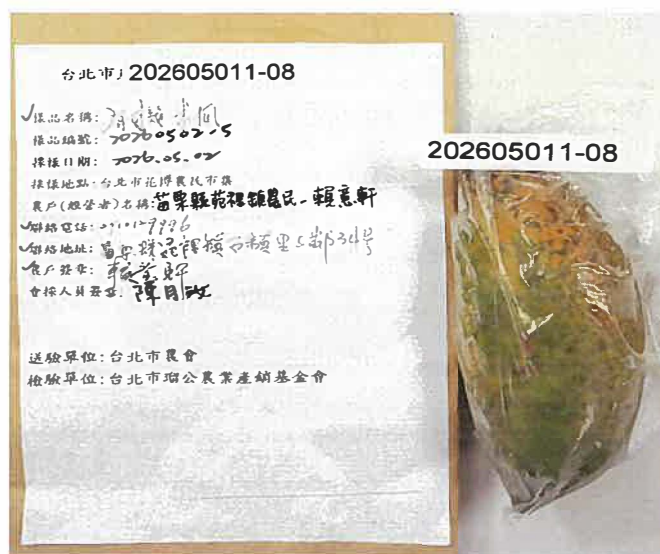 台北市 202605011-08
樣品名稱: 有機木瓜
樣品編號: 20260502-5
採樣日期: 2026.05.02
採樣地點: 台北市花博農民市集
農戶(經營者)名稱: 苗栗縣苑裡鎮農民-賴意軒
聯絡電話:
聯絡地址: 苗栗縣苑裡鎮石鎮里5鄰34号
農戶簽章:
會採人員簽章: 陳月
送驗單位: 台北市農會
檢驗單位: 台北市瑠公農業產銷基金會
202605011-08